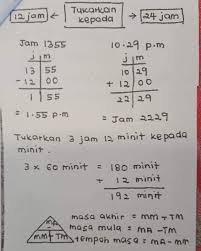 12 jam ← Tukarkan kepada → 24 jam
Jam 1355
j | m
13 | 55
- 12 | 00
1 | 55
= 1.55 p.m
10.29 p.m
j | m
10 | 29
+ 12 | 00
22 | 29
= Jam 2229
Tukarkan 3 jam 12 minit kepada
minit.
3 x 60 minit = 180 minit
+ 12 minit
192 minit
MA
MM + TM
masa akhir = MM + TM
masa mula = MA - TM
tempoh masa = MA - MM